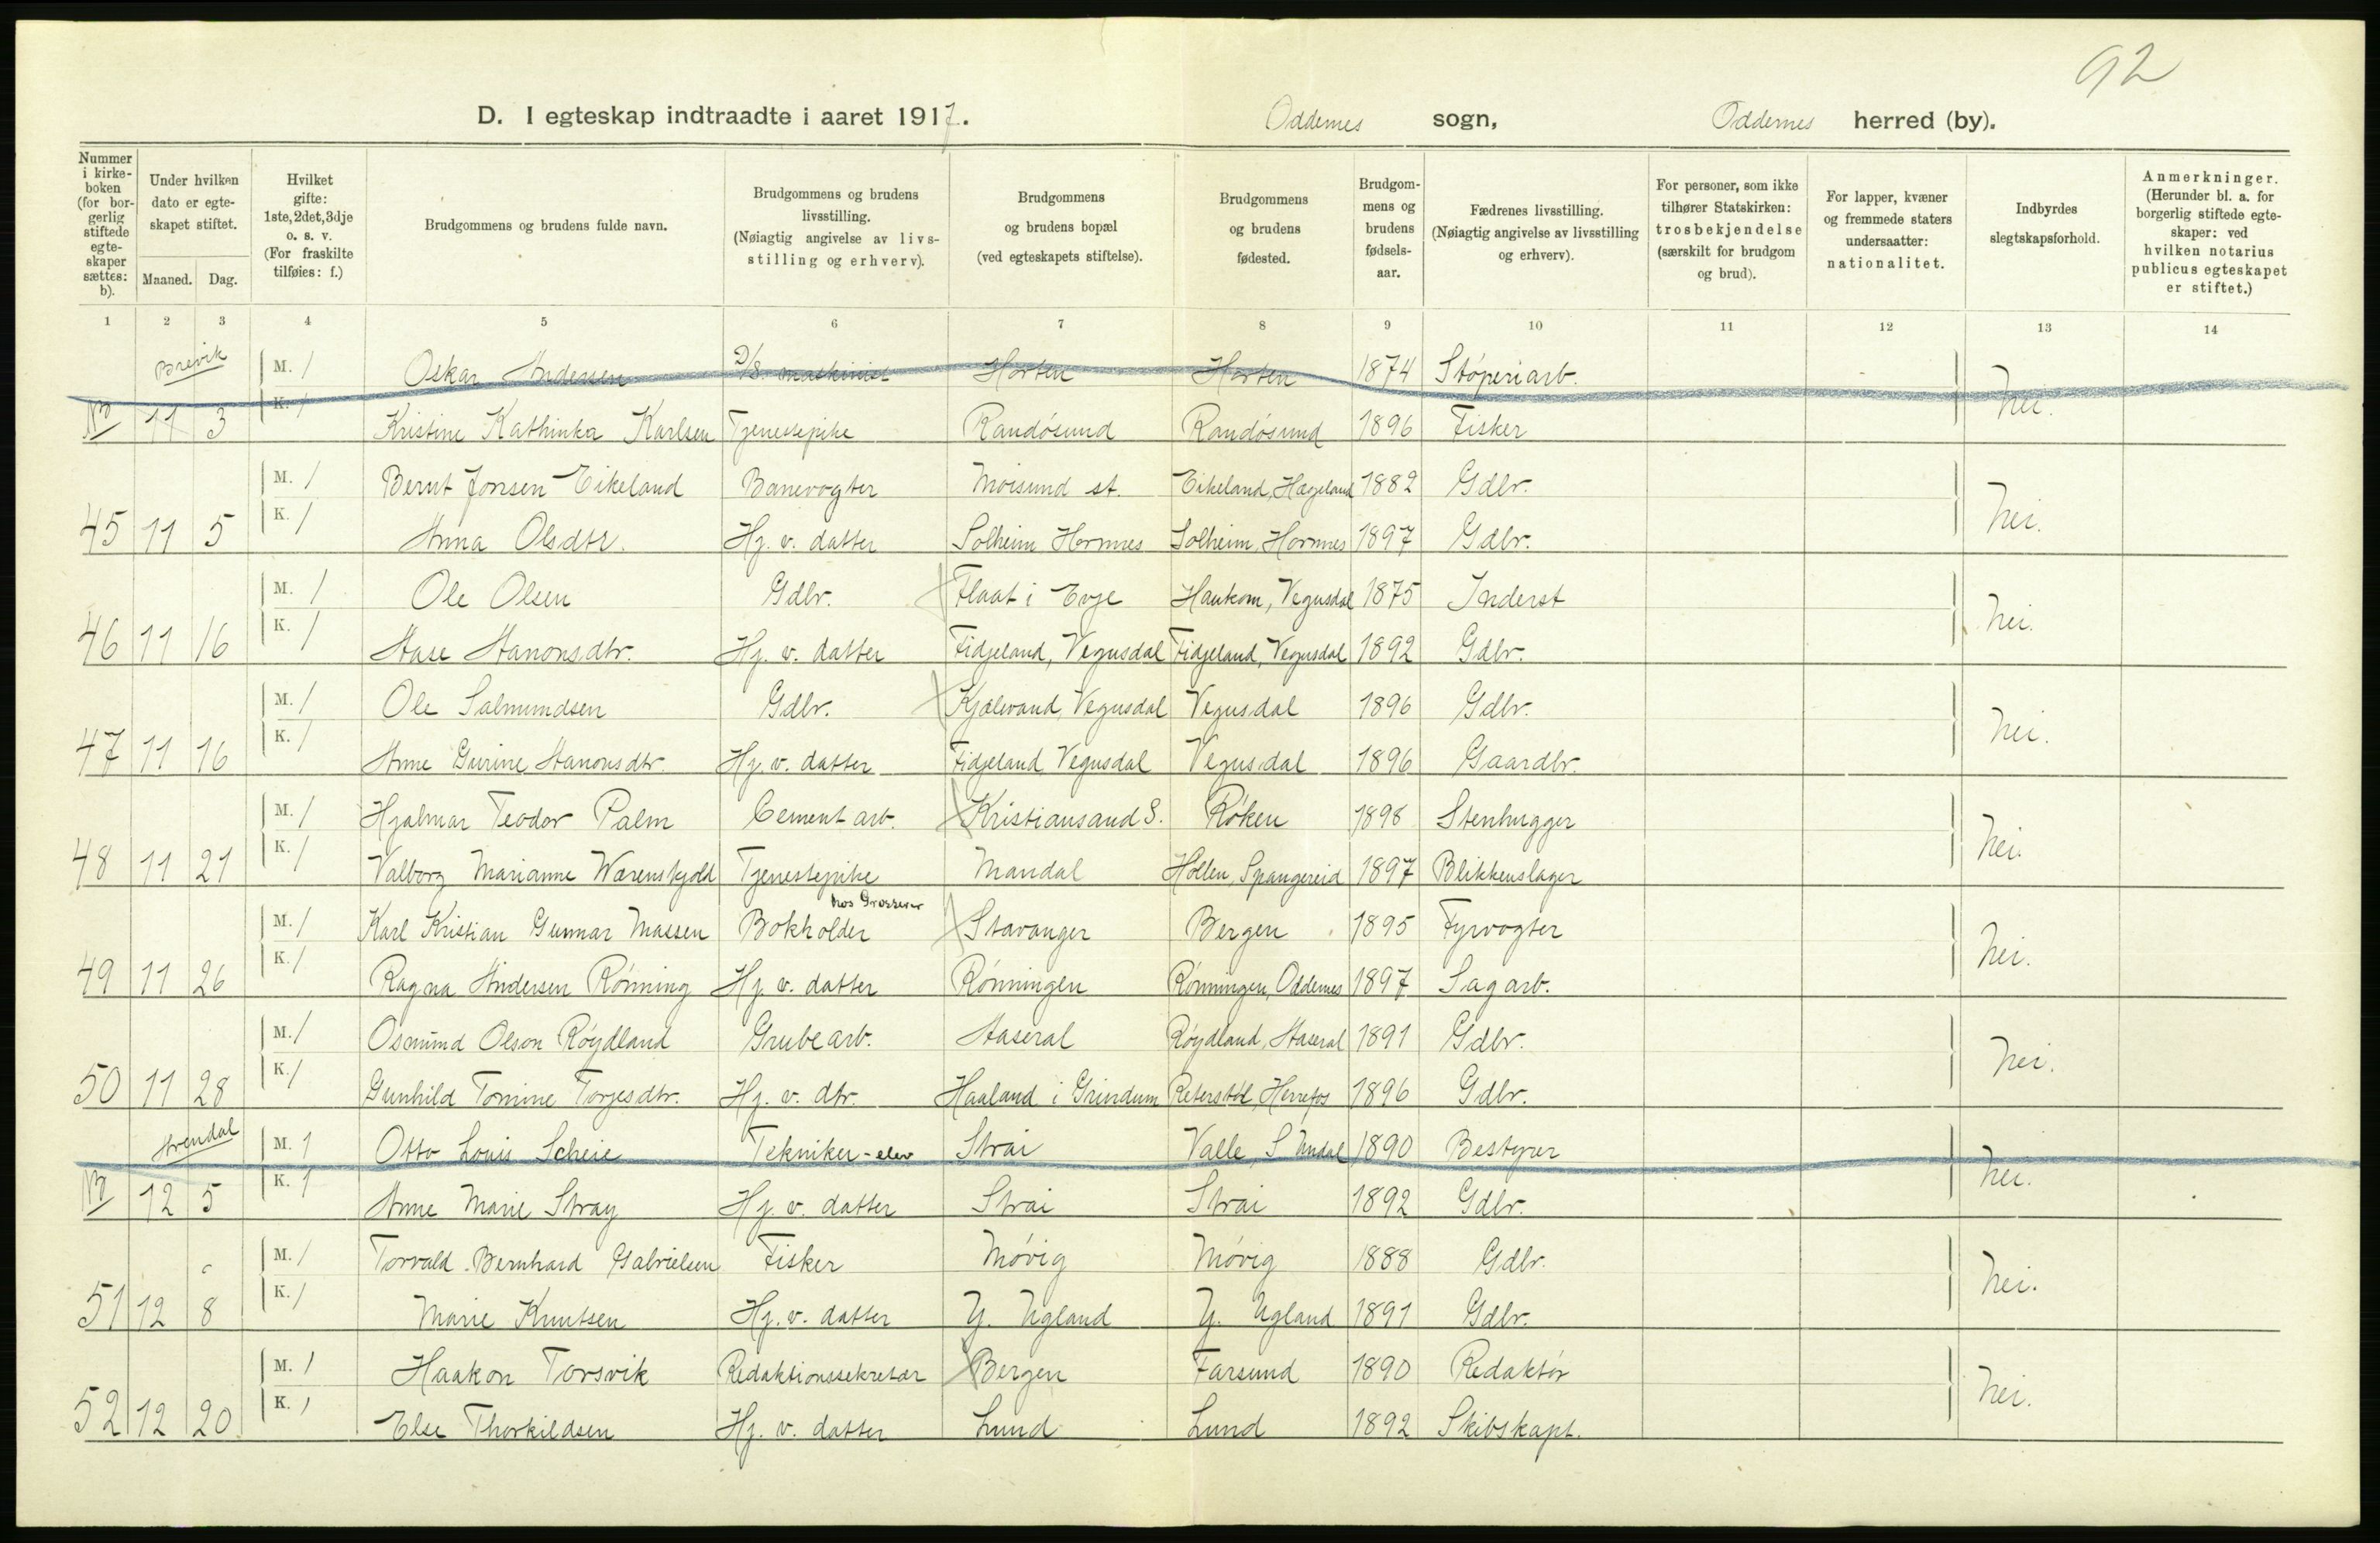 92
D. I egteskap indtraadte i aaret 1917. Oddernes sogn, Oddernes herred (by).
Nummer i kirke- boken (for bor- gerlig stiftede egte- skaper sættes: b).
Under hvilken dato er egte- skapet stiftet.
Maaned. Dag.
Hvilket gifte: 1ste, 2det, 3dje o. s. v. (For fraskilte tilføies: f.)
Brudgommens og brudens fulde navn.
Brudgommens og brudens livsstilling. (Nøiagtig angivelse av livs- stilling og erhverv).
Brudgommens og brudens bopæl (ved egteskapets stiftelse).
Brudgommens og brudens fødested.
Brudgom- mens og brudens fødsels- aar.
Fædrenes livsstilling. (Nøiagtig angivelse av livsstilling og erhverv).
For personer, som ikke tilhører Statskirken: trosbekjendelse (særskilt for brudgom og brud).
For lapper, kvæner og fremmede staters undersaatter: nationalitet.
Indbyrdes slegtskapsforhold.
Anmerkninger. (Herunder bl. a. for borgerlig stiftede egte- skaper: ved hvilken notarius publicus egteskapet er stiftet.)
1 2 3 4 5 6 7 8 9 10 11 12 13 14
Brevik M. 1 Oskar Andersen D/S. maskinist Horten Horten 1874 Støperiarb.
11 3 K. 1 Kristine Kathinka Karlsen Tjenestepike Randøsund Randøsund 1896 Fisker nei.
M. 1 Bernt Jonsen Eikeland Banevogter Moisund st. Eikeland, Hægeland 1882 Gdbr.
45 11 5 K. 1 Anna Olsdtr. Hj. v. datter Solheim Hornnes Solheim, Hornnes 1897 Gdbr. nei.
M. 1 Ole Olsen Gdbr. Flaat i Evje Haukom, Vegusdal 1875 Inderst
46 11 16 K. 1 Aase Aanonsdtr. Hj. v. datter Fidjeland, Vegusdal Fidjeland, Vegusdal 1892 Gdbr. nei.
M. 1 Ole Salmundsen Gdbr. Kjælevand, Vegusdal Vegusdal 1896 Gdbr.
47 11 16 K. 1 Anne Gurine Aanonsdtr. Hj. v. datter Fidjeland Vegusdal Vegusdal 1896 Gaardbr. nei.
M. 1 Hjalmar Teodor Palm Cement arb. Kristiansand S. Røken 1898 Stenhugger
48 11 21 K. 1 Valborg Marianne Wærenskjold Tjenestepike Mandal Høllen, Spangereid 1897 Blikkenslager nei.
M. 1 Karl Kristian Gunnar Maesen Bokholder hos Grosserer Stavanger Bergen 1895 Fyrvogter
49 11 26 K. 1 Ragna Andersen Rønning Hj. v. datter Rønningen Rønningen, Oddernes 1897 Sagarb. nei.
M. 1 Osmund Olson Røydland Grubearb. Aaseral Røydland, Aaseral 1891 Gdbr.
50 11 28 K. 1 Gunhild Tomine Torjesdtr. Hj. v. dtr. Haaland i Grindum Retterstøl, Herrefos 1896 Gdbr. nei.
Arendal M. 1 Otto Louis Scheie Tekniker-elev Strai Valle, S Undal 1890 Bestyrer
12 5 K. 1 Anne Marie Stray Hj. v. datter Strai Strai 1892 Gdbr. nei.
M. 1 Torvald Bernhard Gabrielsen Fisker Møvig Møvig 1888 Gdbr.
51 12 8 K. 1 Marie Knutsen Hj. v. datter Y. Ugland Y. Ugland 1891 Gdbr. nei.
M. 1 Haakon Torsvik Redaktionssekretær Bergen Farsund 1890 Redaktør
52 12 20 K. 1 Else Thorkildsen Hj. v. datter Lund Lund 1892 Skibskapt. nei.